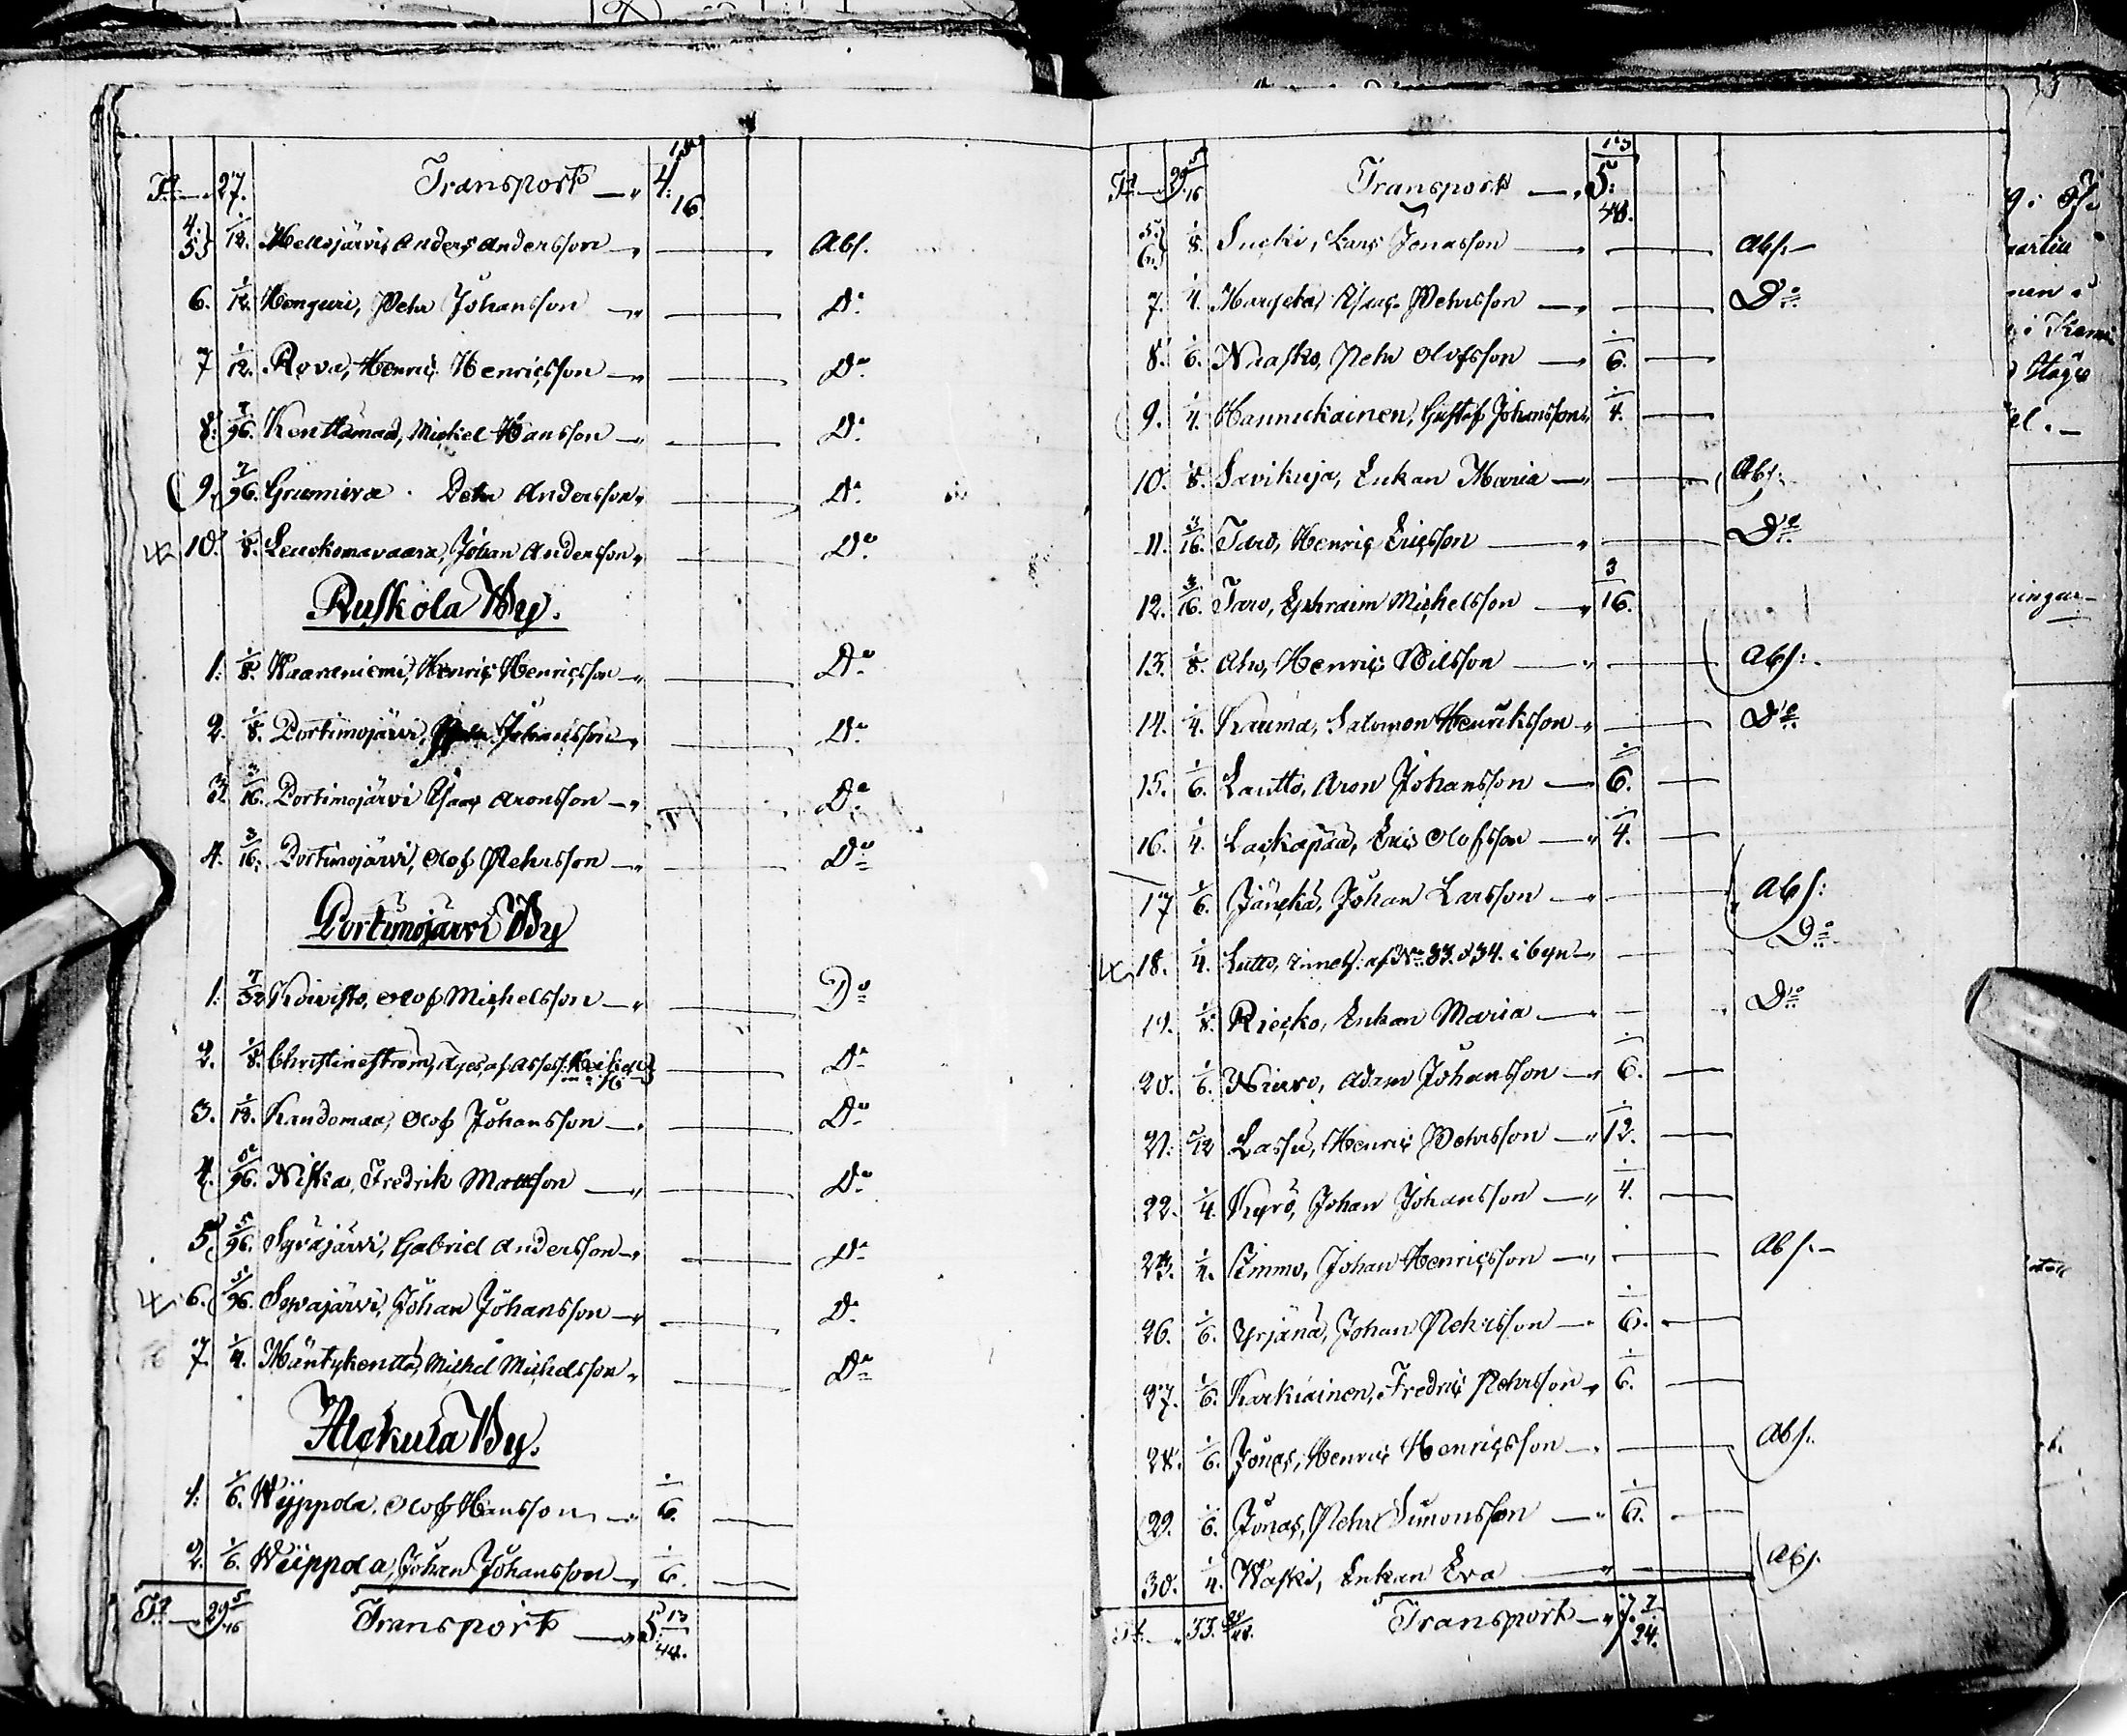 Tt — 27. Transport — " 4. 16.
4. 5} 1/12. Mellajärvi, Anders Andersson — " — Abs.
6. 1/12. Konguri, Pehr Johansson — " — Do
7 1/12. Rova, Henric Henricsson — " — Do
8. 7/96. Kenttämaa, Mickel Hansson — " — Do
9. 7/96. Grumiva. Petr Andersson " — Do
10. 1/8. Leuokomavaara, Johan Andersson " — Do
Ruskola By.
1. 1/8. Waaraniemi, Henric Henricsson — " — Do
2. 1/8. Portimojärvi, Johansson — " — Do
3. 3/16. Portimojärvi Isaac Aronsson — " — Do
4. 3/16. Portimojärvi, Olof Pehrsson — " — Do
Portimojärvi By
1. 7/32 Koivisto, Olof Michelsson — " — Do
2. 1/8. Christineström, Äges af Assess. — Do
3. 1/12. Kandomaa, Olof Johansson — " — Do
4. 5/96. Niska, Fredrik Mattsson — " — Do
5. 5/96. Syväjärvi, Gabriel Andersson — " — Do
6. 5/96. Syväjärvi, Johan Johansson — " — Do
7. 1/4. Mäntykenttä, Michel Michelsson " — Do
Alckula By.
1. 1/6. Wyppola. Olof Hansson — " 1/6. —
2. 1/6. Wüppola, Johan Johansson — " 1/6. —
Tt — 29 5/16 Transport — " 5. 13/48.
Tt — 29 5/16 Transport — " 5. 13/48.
5. 6.} 1/8. Sucki, Lars Jonasson — " — Abs. —
7. 1/4. Isac Pehrsson — " — Do
8. 1/6. Naasko, Pehr Olofsson — " 1/6. —
9. 1/4. Hannukainen, Gustaf Johansson " 1/4. —
10. 1/8. Savikuja, Enkan Maria — " — Abs.
11. 3/16. Taro, Henric Ericsson — " — Do
12. 3/16. Taro, Ephraim Michelsson — " 3/16.
13. 1/8. Aho, Henric Nilsson — " — Abs.
14. 1/4. Kauma, Salomon Henriksson " — Do
15. 1/6. Lautto, Aron Johansson — " 1/6. —
16. 1/4. Lackapää, Eric Olofsson — " 1/4. —
17 1/6. Jäucka, Johan Larsson — " — Abs:
18. 1/4. Lutto, innes: af No 33. & 34. i byn — " — Do
19. 1/8. Riecko, Enkan Maria — " — Do
20. 1/6. Niuro, Adam Johansson — " 1/6. —
21. 1/12 Lassu, Henric Pehrsson — " 1/12. —
22. 1/4. Kyrö, Johan Johansson — " 1/4. —
1/4. Simmo, Johan Henricsson — " — Abs. —
26. 1/6. Yrjänä, Johan Pehrsson — " 1/6. —
27. 1/6. Karkiainen, Fredric Pehrsson " 1/6. —
28. 1/6. Jonas, Henric Henricsson — " — Abs.
29. 1/6. Jonas, Pehr Simonsson — " 1/6. —
30. 1/4. Waski, Enkan Eva — " — Abs.
Tt — 33. Transport — " 7. 7/24.